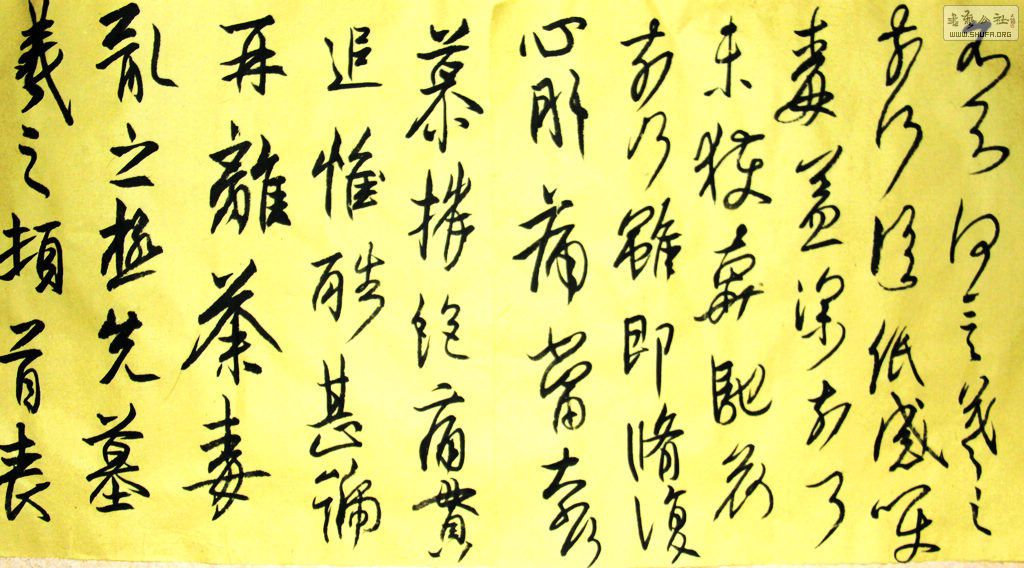 羲之頓首喪
亂之極先墓
再離荼毒
追惟酷甚號
慕摧絕痛貫
心肝痛當奈何
奈何雖即脩復
未獲奔馳哀
毒益深奈何
奈何臨紙感哽
不知何言羲之
書法公社
WWW.SHUFA.ORG